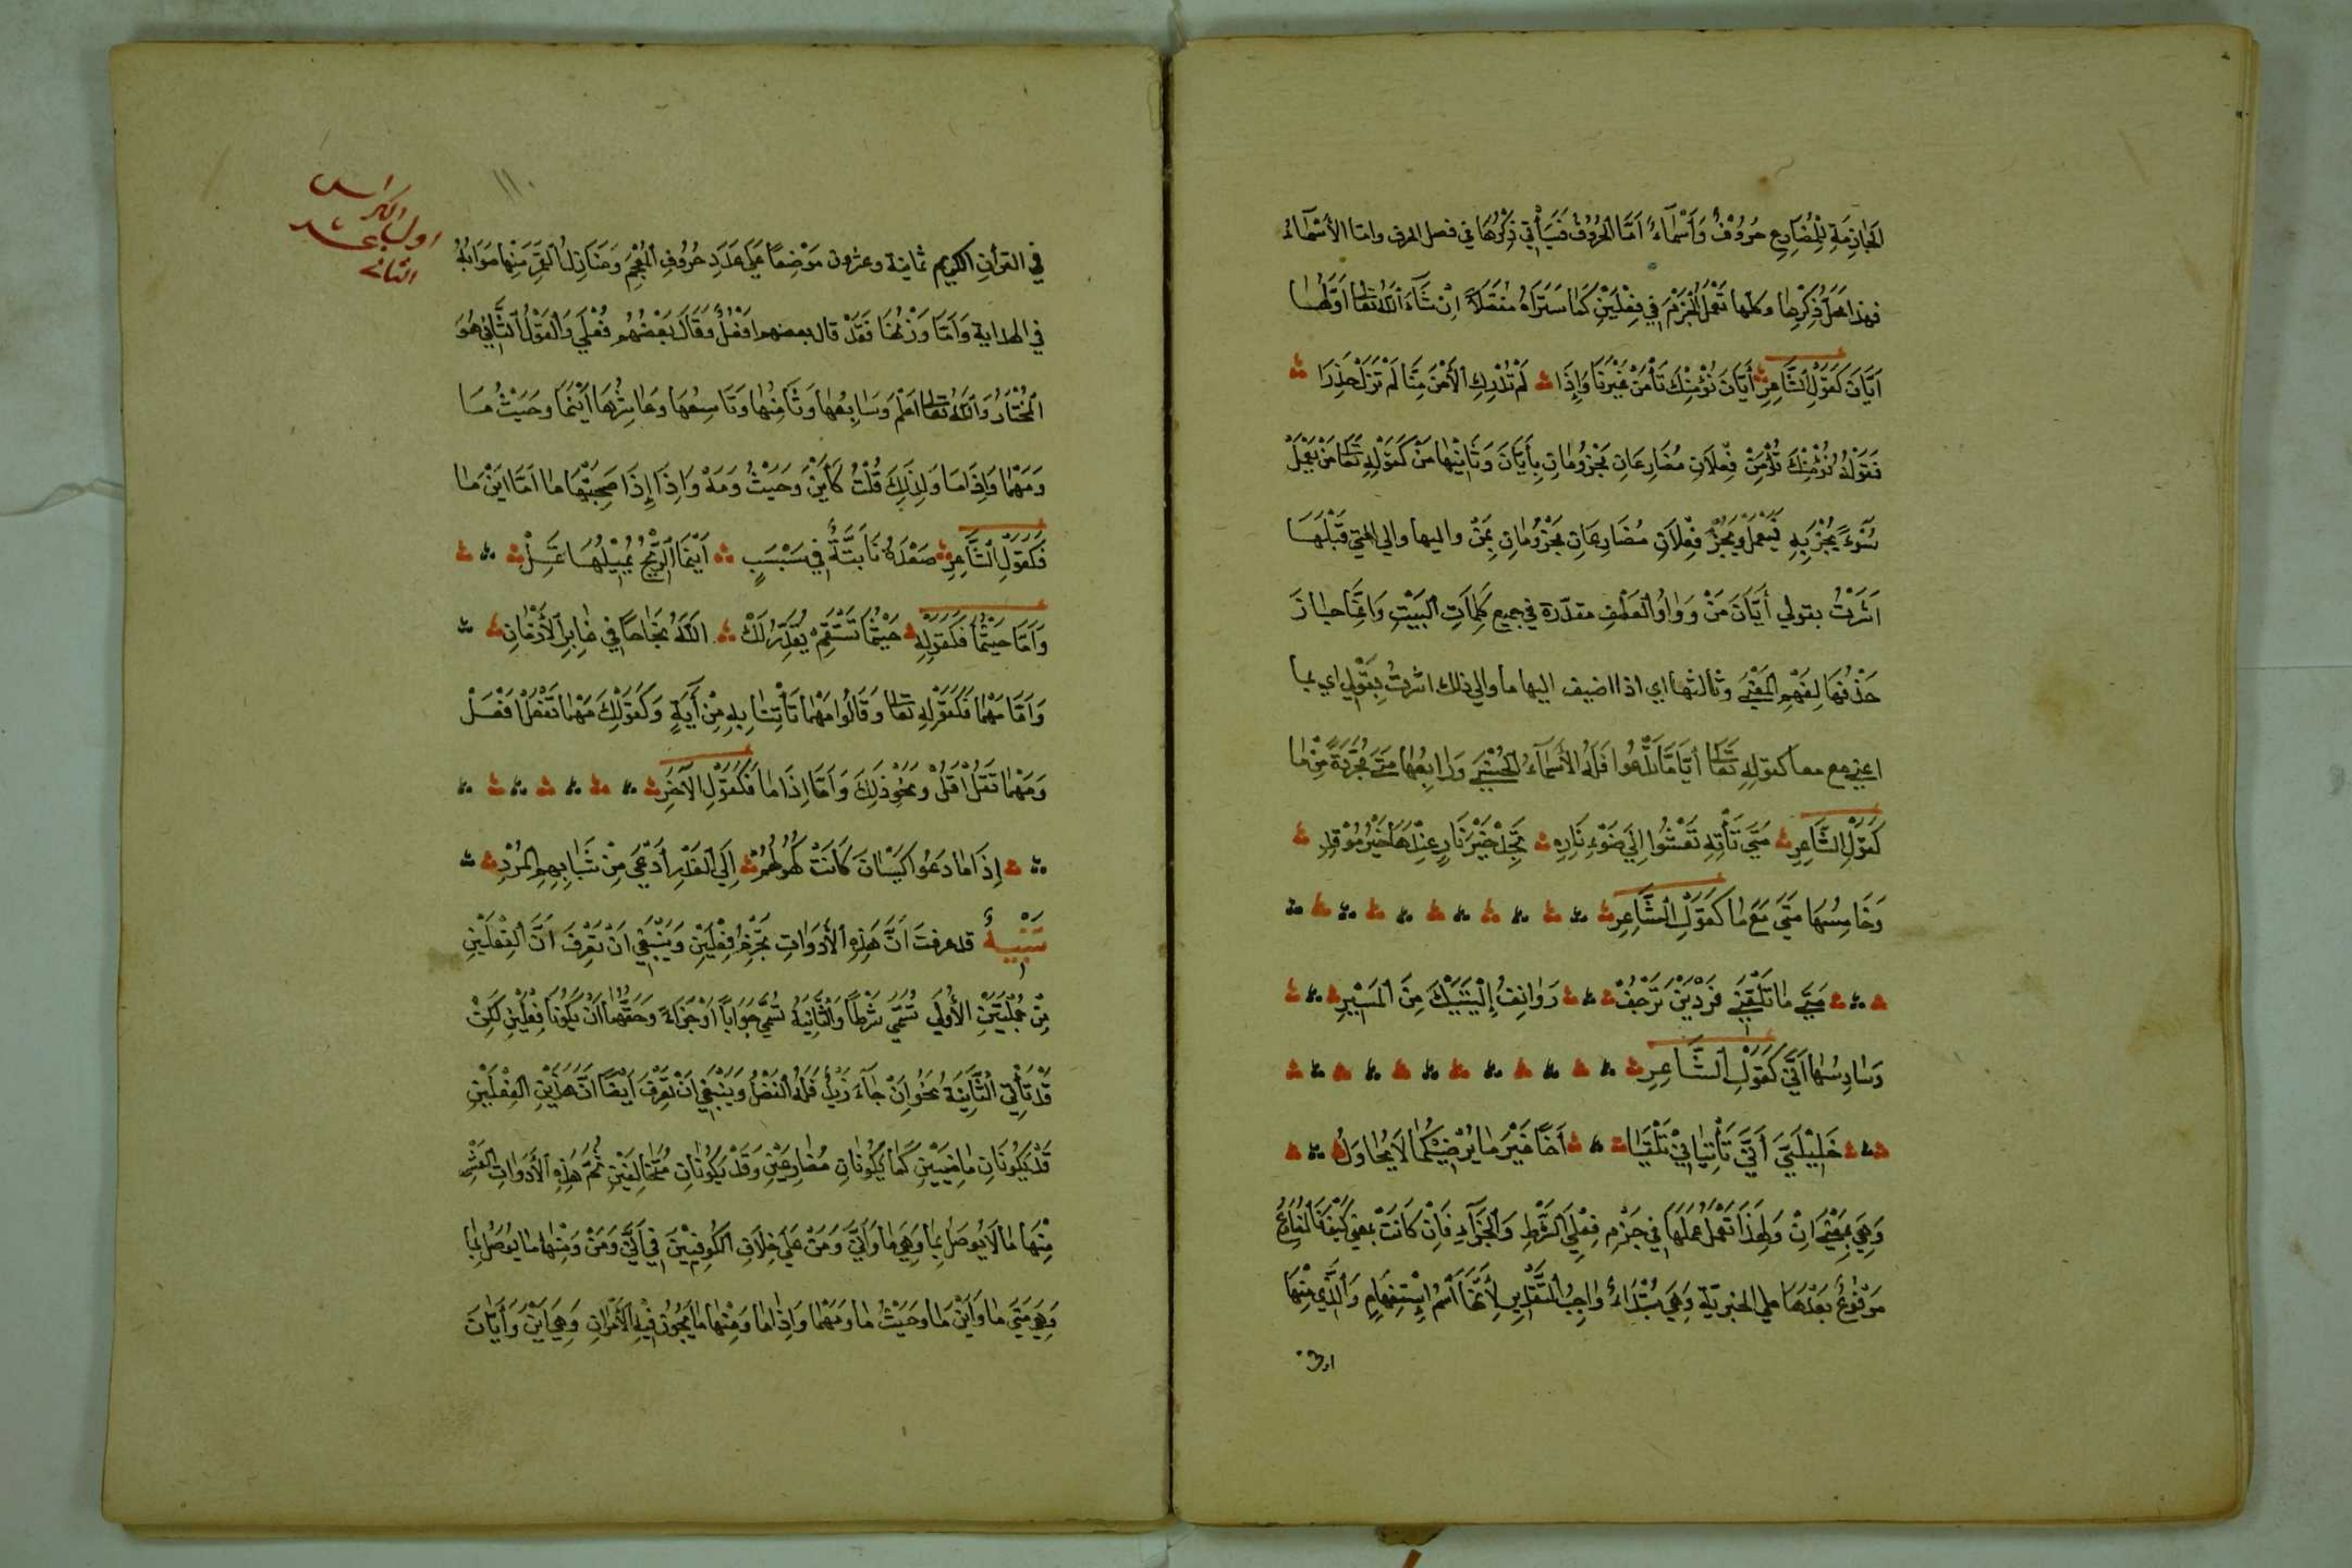 الجازمة للمضارع حروفٌ وأسماءٌ أمّا الحروف فسيأتي ذكرها في فصل الحرف واما الأسماءُ
فهذا محلّ ذكرها وكلها تعمل الجزم في فعلين كما ستراه مفصّلاً ان شاء الله تعالى اوّلها
أيّان كقول الشاعر أيّان نؤمنك تأمن غيرنا وإذا لم تدرك الأمن منّا لم تزل حذرا
فقوله نؤمنك تؤمن فعلان مضارعان مجزومان بأيّان وثانيها من كقوله تعالى من يعمل
سوءً يجز به فيعمل ويجز فعلان مضارعان مجزومان بمن واليها والى التي قبلها
اشرت بقولي أيّان من وواو العطف مقدّرة في جميع كلمات البيت وانما جاز
حذفها لفهم المعنى وثالثها اي اذا اضيف اليها ما والى ذلك اشرت بقولي اي بما
اعني مع ما كقوله تعالى أيّا مّا تدعوا فله الأسماء الحسنى ورابعها متى مجرّدة من ما
كقول الشاعر متى تأته تعشوا الى ضوء ناره تجد خير نار عندها خير موقد
وخامسها متى مع ما كقول الشاعر
متى ما تلقني فردين ترجف روانف إليتيك من المسير
وسادسها أنّى كقول الشاعر
خليليّ أنّى تأتياني تلقيا أخًا غير ما يرضيكما لا يحاول
وهي بمعنى ان ولهذا تعمل عملها في جزم فعلي الشرط والجزآء فان كانت بمعنى كيف فالمضارع
مرفوع بعدها على الخبرية وهي مبتداء واجب التقدير لأنها اسم استفهام والذي منها
في القرآن الكريم ثمانية وعشرون موضعًا على عدد حروف المعجم ومنازل القمر منها موابهُ
في الهداية وأمّا وزنها فقد قال بعضهم افعل وقال بعضهم فعلى والقول الثاني هو
المختار والله تعالى اعلم وسابعها وثامنها وتاسعها وعاشرها أينما وحيث ما
ومهما واذاما ولذلك قلت كأين وحيث ومه واذا إذا صحبتها ما أمّا اين ما
فكقول الشاعر صعدة نابتةٌ في سبسبٍ أينما الريح تميلها تمل
وأمّا حيثما فكقوله حيثما تستقم يقدّر لك الله نجاحًا في غابر الأزمان
وأمّا مهما فكقوله تعالى وقالوا مهما تأتنا به من آية وكقولك مهما تفعل افعل
ومهما تقل اقل ونحو ذلك وأمّا اذا ما فكقول الآخر
إذا ما دعوا كيسان كانت كهولهم إلى الغدر أدعى من شبابهم المرد
تنبيهٌ قد عرفت أنّ هذه الأدوات تجزم فعلين وينبغي ان تعرف انّ الفعلين
من جملتين الأولى تسمّى شرطًا والثانية تسمّى جوابًا او جزاءً وحقّهما ان يكونا فعلين لكن
قد تأتي الثانية نحو إن جآء زيد فله الفضل وينبغي ان تعرف ايضًا انّ هذين الفعلين
قد يكونان ماضيين كما يكونان مضارعين وقد يكونان متخالفين ثم هذه الأدوات العشر
منها ما لا يوصل بما وهي ما وأنّى ومن على خلاف الكوفيين في أنّى ومن ومنها ما يوصل بما
وهي متى ما واين ما وحيث ما ومهما واذا ما ومنها ما يجوز فيه الأمران وهي اين وأيّان
١١٠
اول الكراس
الثاني عشر